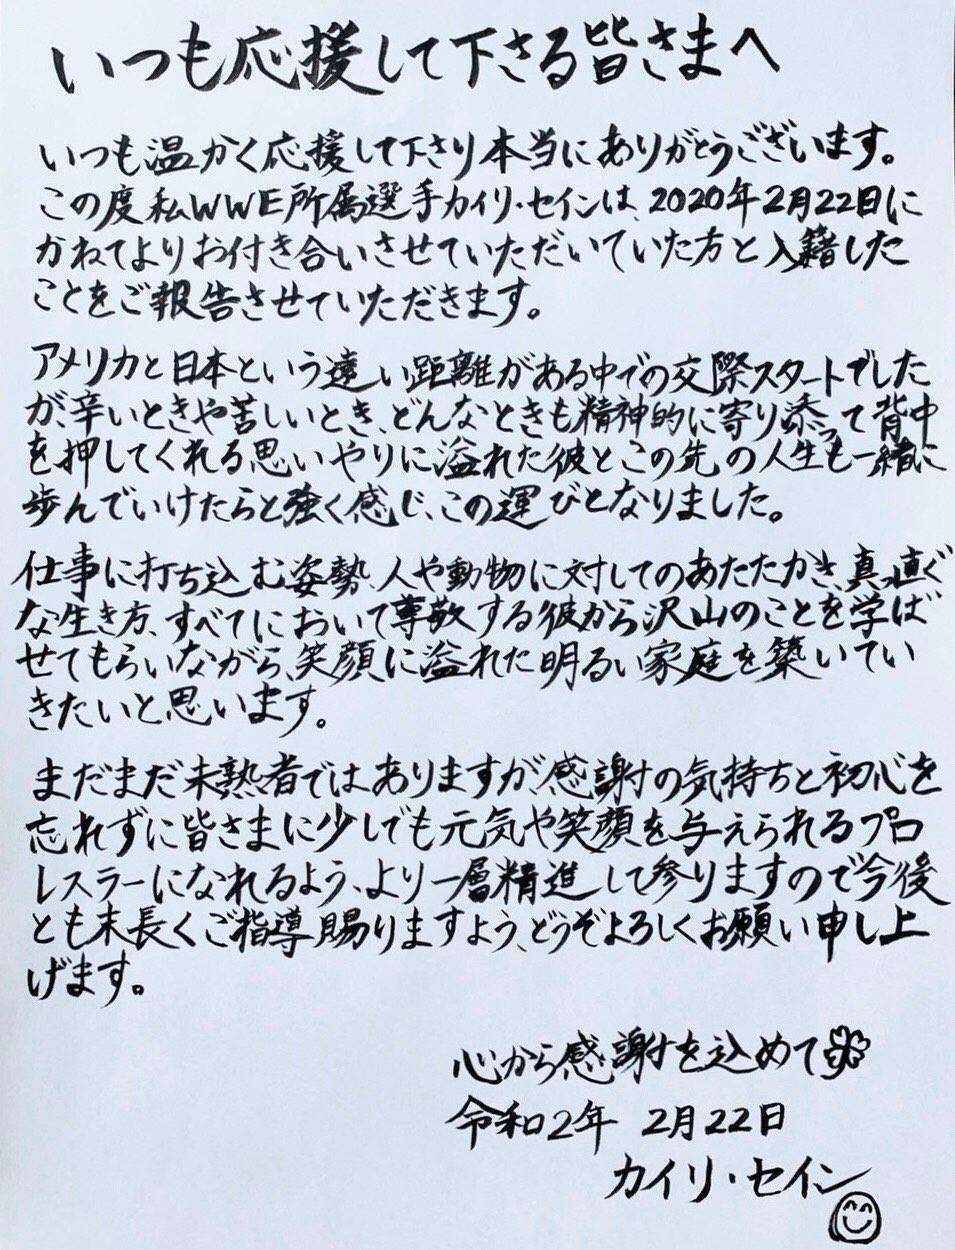 いつも応援して下さる皆さまへ
いつも温かく応援して下さり本当にありがとうございます。
この度私WWE所属選手カイリ・セインは、2020年2月22日に
かねてよりお付き合いさせていただいていた方と入籍した
ことをご報告させていただきます。
アメリカと日本という遠い距離がある中での交際スタートでした
が、辛いときや苦しいとき、どんなときも精神的に寄り添って背中
を押してくれる思いやりに溢れた彼とこの先の人生も一緒に
歩んでいけたらと強く感じ、この運びとなりました。
仕事に打ち込む姿勢、人や動物に対してのあたたかさ、真っ直ぐ
な生き方、すべてにおいて尊敬する彼から沢山のことを学ば
せてもらいながら、笑顔に溢れた明るい家庭を築いてい
きたいと思います。
まだまだ未熟者ではありますが、感謝の気持ちと初心を
忘れずに皆さまに少しでも元気や笑顔を与えられるプロ
レスラーになれるよう、より一層精進して参りますので今後
とも末長くご指導賜りますよう、どうぞよろしくお願い申し上
げます。
心から感謝を込めて
令和2年 2月22日
カイリ・セイン